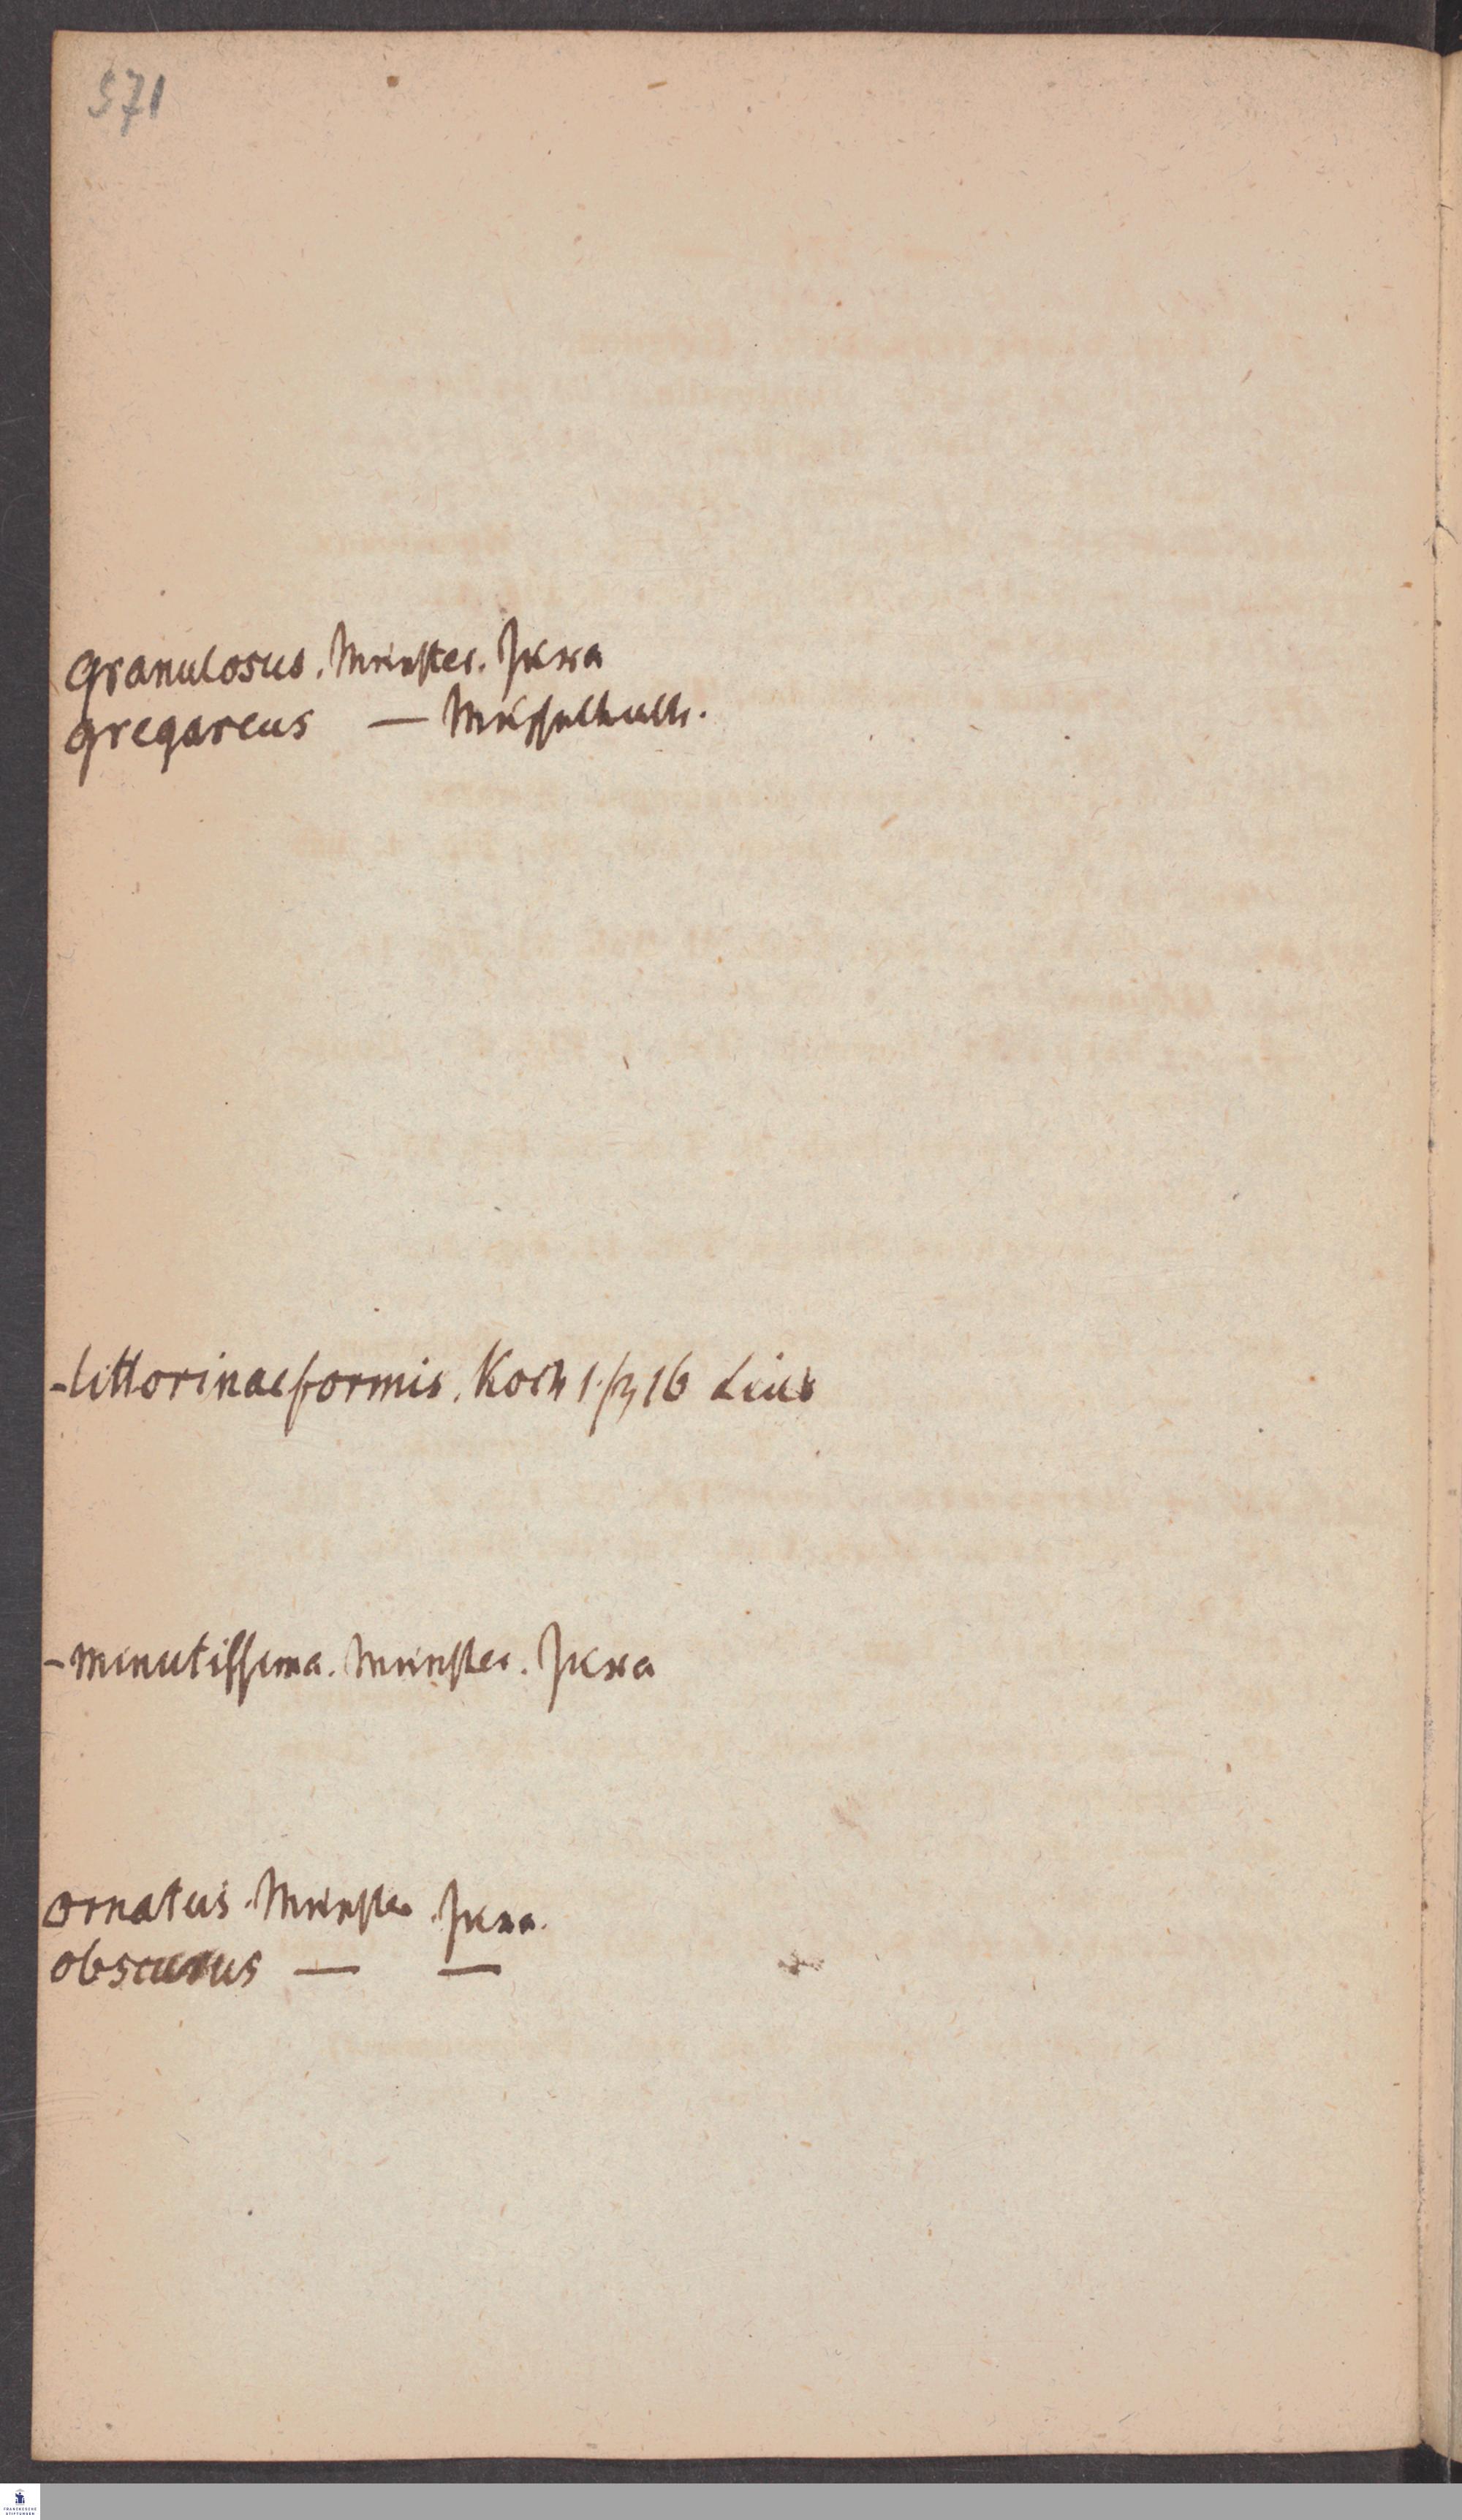 571
granulosus. Münster. Jura
gregareus — Muschelkalk.
- littorinaeformis. Koch 1. fig 16 Lias
- minutissima. Münster. Jura
ornatus. Münster. Jura.
obscurus — —
FRANCKESCHE
STIFTUNGEN